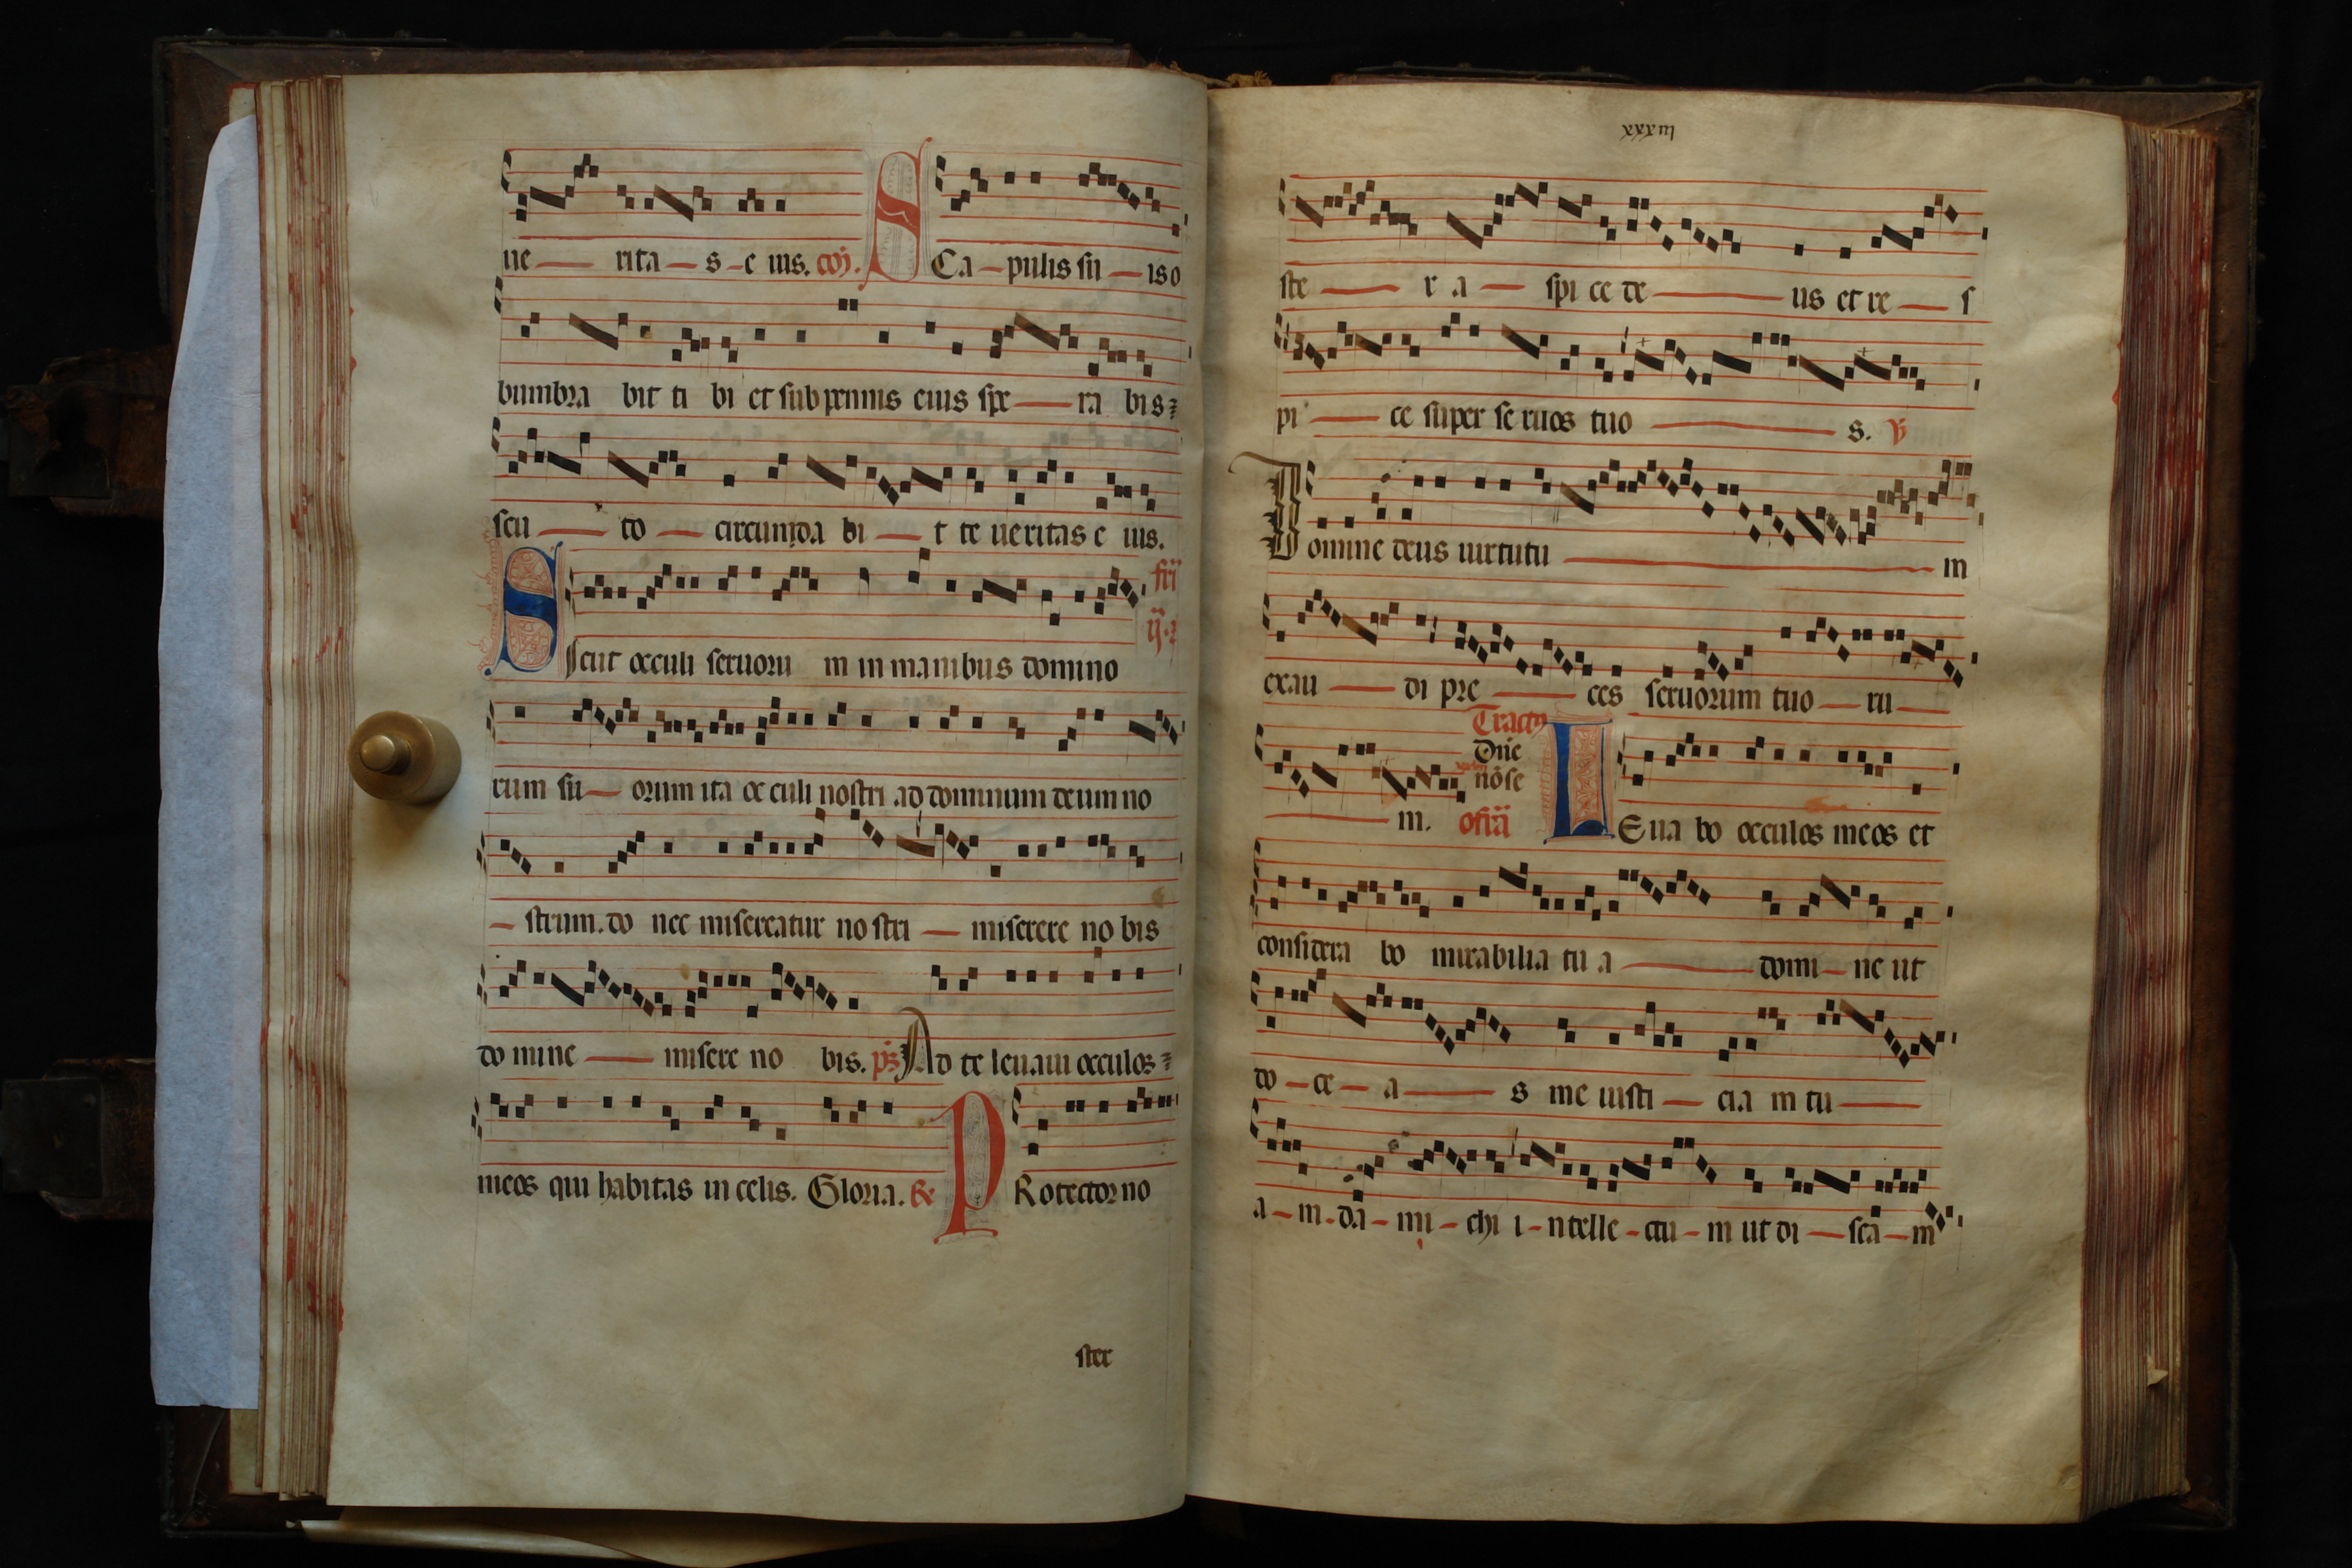 ue rita s e ius. coӡ. SCa pulis su is o
bumbra bit ti bi et sub pennis eius spe ra bis:
scu to circunda bi t te ueritas e ius.
Sicut occuli seruoru m in manibus domino
fr̄ij
ij.
rum su orum ita oc culi nostri ad dominum deum no
strum. do nec misereatur no stri miserere no bis
do mine misere no bis. ps̄ Ad te leuaui occulos
meos qui habitas in celis. Gloria. ℞ PRotector no
ster
xxxiii
ste r a spi ce de us et re s
pi ce super se ruos tuo s. ℣
Domine deus uirtutu m
exau di pre ces seruorum tuo ru
m. Tractꝰ
Dn̄e
nō se
ofr̄a LEua bo occulos meos et
considera bo mirabilia tu a domi ne ut
do ce a s me iusti cia m tu
a m. da mi chi i ntelle ctu m ut di sca m